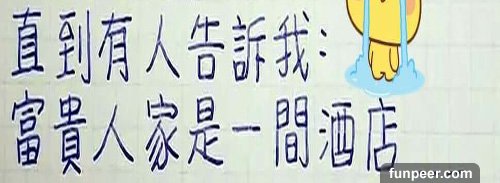 直到有人告訴我：
富貴人家是一間酒店
funpeer.com